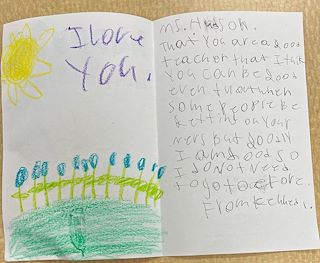 I love
You.
ms.
that you are a good
teacher that I think
you can be good
even thoh when
some people be
getting on your
nervs but goodly
I am good so
I do not need
to go to
From